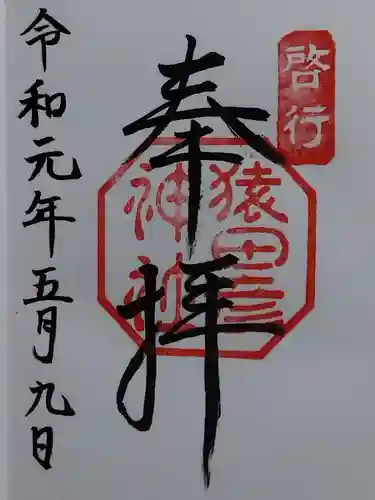 啓行
奉拝
猿田彦
神社
令和元年五月九日